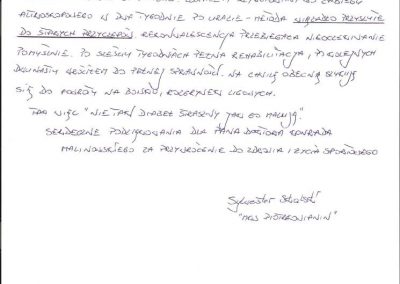 ARTROSKOPOWEGO W DWA TYGODNIE PO URAZIE - METODA
DO STARYCH PRZYCHODÓW REKONWALESCENCJA PRZEBIEGŁA NIEOCZEKIWANIE
POMYŚLNIE. PO SZEŚCIU TYGODNIACH PEŁNA REHABILITACJA, PO KOLEJNYCH
DWUNASTU WRÓCIŁEM DO PEŁNEJ SPRAWNOŚCI. NA CHWILĘ OBECNĄ SZYKUJĘ
SIĘ DO POWROTU NA BOISKO, ROZGRYWEK LIGOWYCH.
TAK WIĘC "NIE TAKI DIABEŁ STRASZNY JAK GO MALUJĄ".
SERDECZNE PODZIĘKOWANIA DLA PANA DOKTORA KONRADA
MALINOWSKIEGO ZA PRZYWRÓCENIE DO ZDROWIA I ŻYCIA SPORTOWEGO
Sylwester
"PIOTRKOWIANIN"